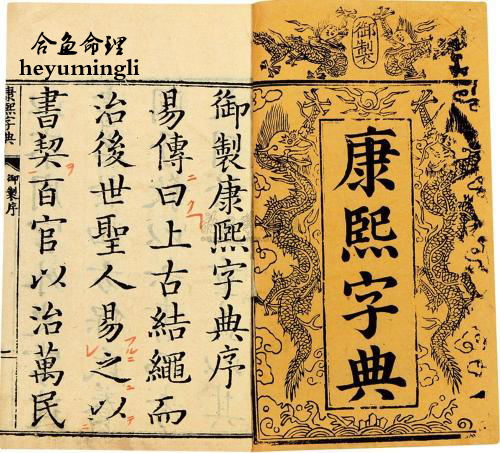 合魚命理
heyumingli
御製
康熙字典
御製康熙字典序
易傳曰上古結繩而
治後世聖人易之以
書契百官以治萬民
康熙字典
御製序
一